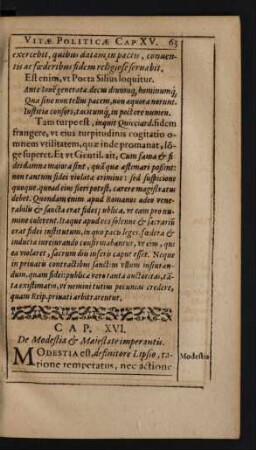 VITÆ POLITICÆ CAP XV. 63
exercebit, quibus datam in pactis, conuen-
tis ac fœderibus fidem religiosè seruabit.
Est enim, vt Poeta Silius loquitur.
Ante Iouẽ generata decus diuumq́, hominumq́,
Qua sine non tellus pacem, non æquora norunt.
Iustitiæ consors, tacitumq́, in pectore numen.
Tam turpe est, inquit Quicciard. fidem
frangere, vt eius turpitudinis cogitatio o-
mnem vtilitatem, quæ inde promanat, lõ-
gè superet. Et vt Gentil. ait, Cum fama & fi-
dei damna maiora sint, quã quæ æstimari possint:
non tantum fidei violatæ crimine: sed suspicione
quoque, quoad eius fieri potest, carere magistratus
debet. Quondam enim apud Romanos adeo vene-
rabilis & sancta erat fides publica, vt eam pro nu-
mine culterent. Itaque apud eos solenne & sacrariũ
erat fidei institutum, in quo paces leges, fœdera &
induciæ ineundando confirmabantur, vt eius, qui
ea violaret, sacrum diis inferis caput esset. Neque
in priuatis contractibus sanctius vllum iusiuran-
dum, quam fidei: publicæ vero tanta auctoritas, tã-
ta existimatio, vt nemini tutius pecunias credere,
quam Reip. priuati arbitrarentur.
CAP. XVI.
De Modestia & Maiestate imperantis.
MODESTIA est, definitore Lipsio, ra- Modestia
tione temperatus, nec actione